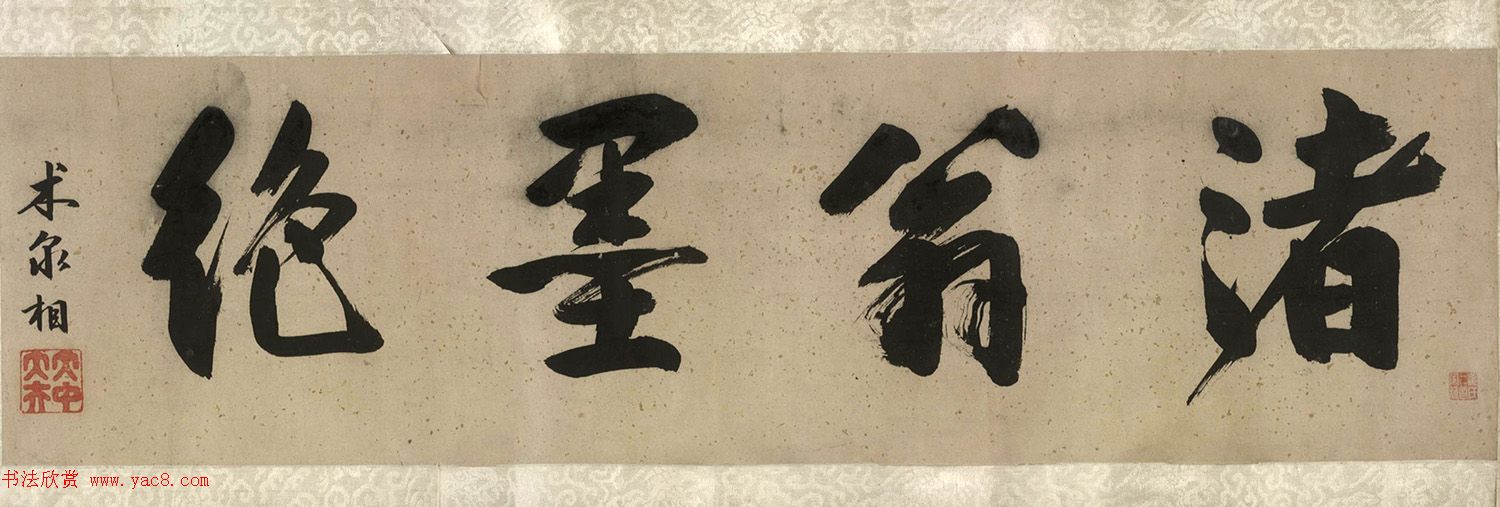 渚翁墨絶
木泉相
书法欣赏 www.yac8.com